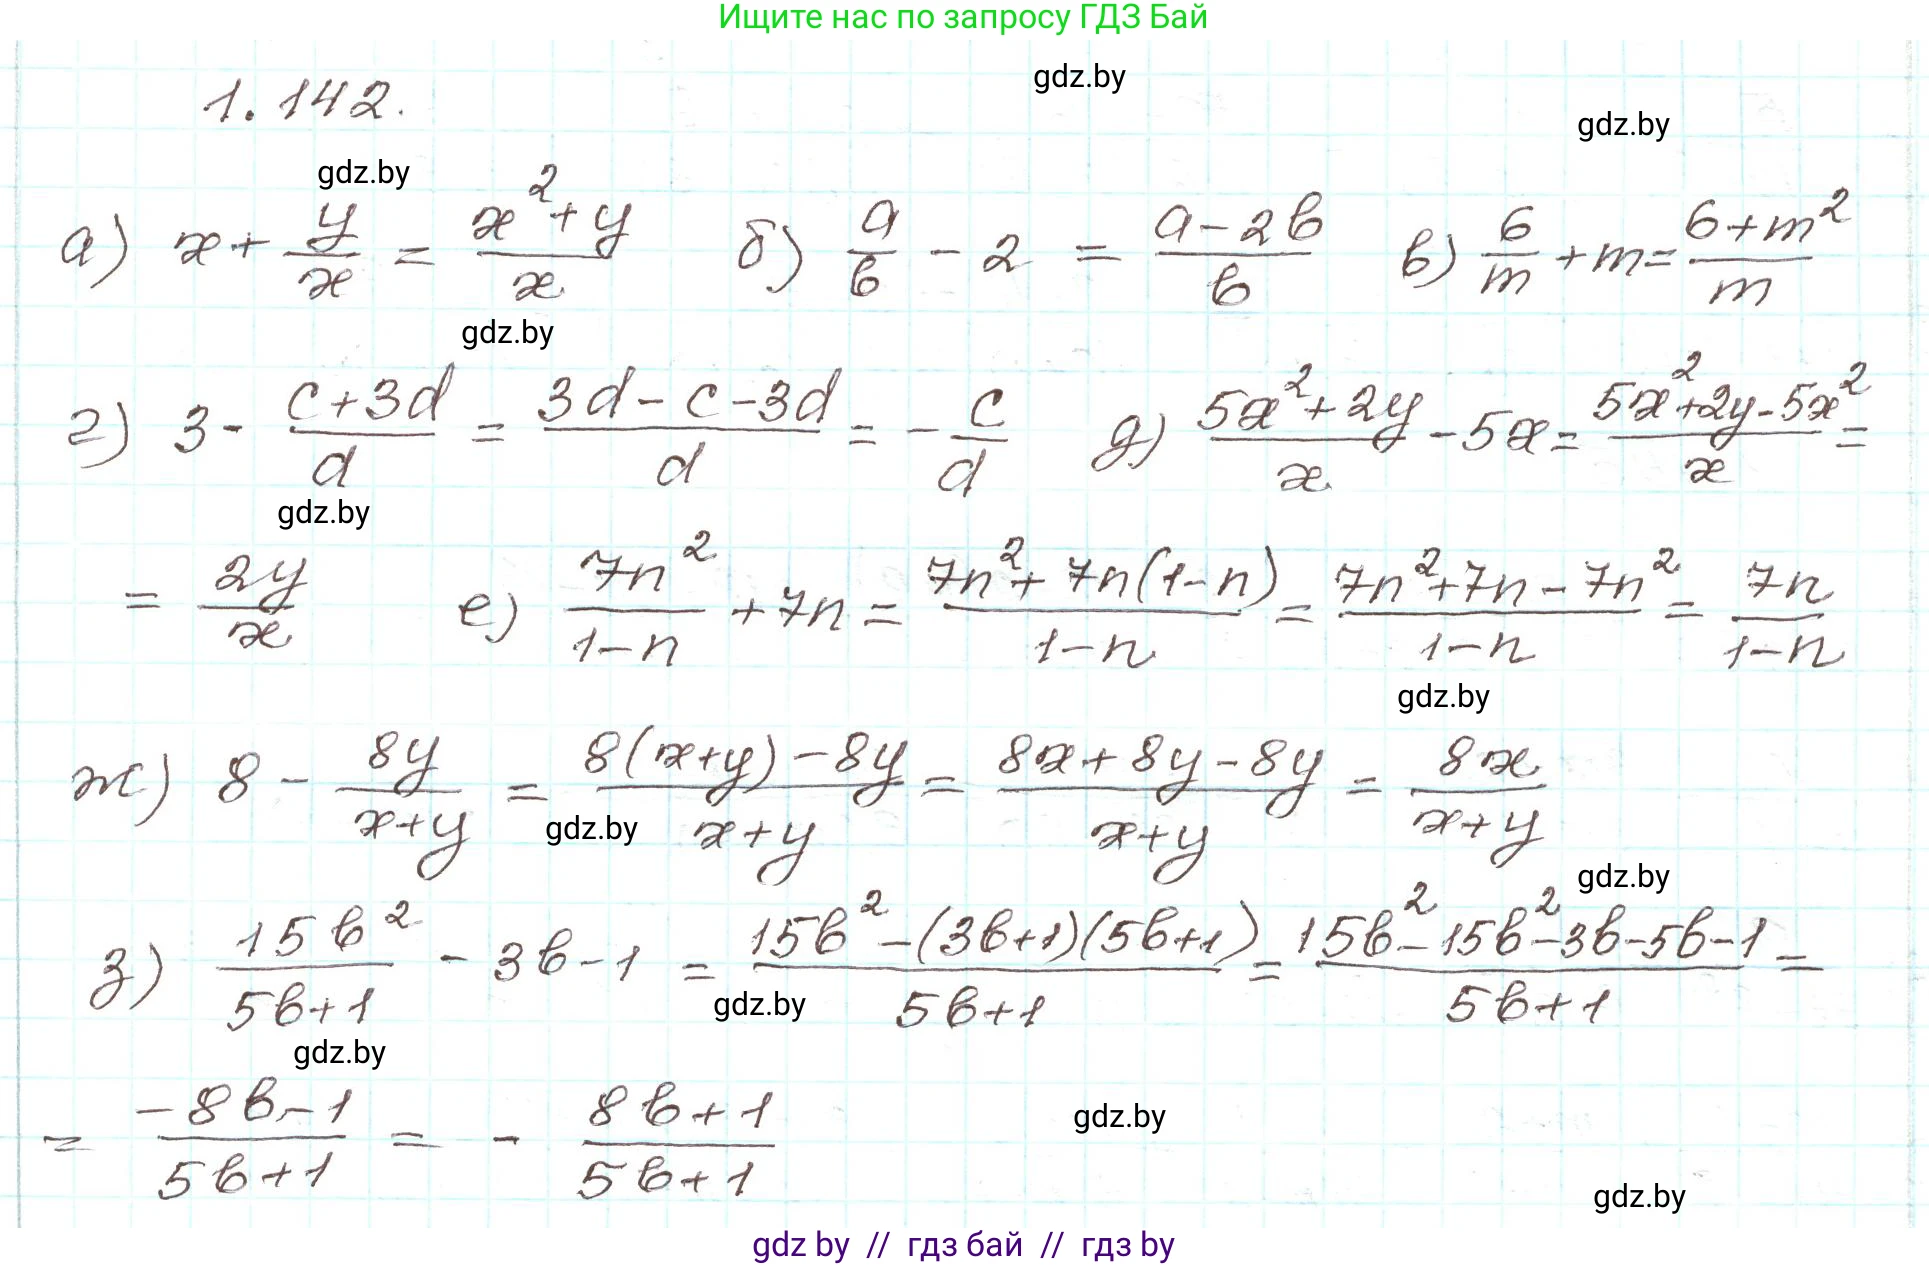 Ищите нас по запросу ГДЗ Бай
gdz.by
1.142.
gdz.by
gdz.by
а) x + y/x = (x² + y)/x   б) a/b - 2 = (a - 2b)/b   в) 6/m + m = (6 + m²)/m
gdz.by
г) 3 - (c + 3d)/d = (3d - c - 3d)/d = - c/d   д) (5x² + 2y)/x - 5x = (5x² + 2y - 5x²)/x =
gdz.by
= 2y/x   е) 7n²/(1 - n) + 7n = (7n² + 7n(1 - n))/(1 - n) = (7n² + 7n - 7n²)/(1 - n) = 7n/(1 - n)
gdz.by
ж) 8 - 8y/(x + y) = (8(x + y) - 8y)/(x + y) = (8x + 8y - 8y)/(x + y) = 8x/(x + y)
gdz.by
gdz.by
з) 15b²/(5b + 1) - 3b - 1 = (15b² - (3b + 1)(5b + 1))/(5b + 1) = (15b² - 15b² - 3b - 5b - 1)/(5b + 1) =
gdz.by
gdz.by
= (-8b - 1)/(5b + 1) = - (8b + 1)/(5b + 1)
gdz.by
gdz.by
gdz by // гдз бай // гдз by